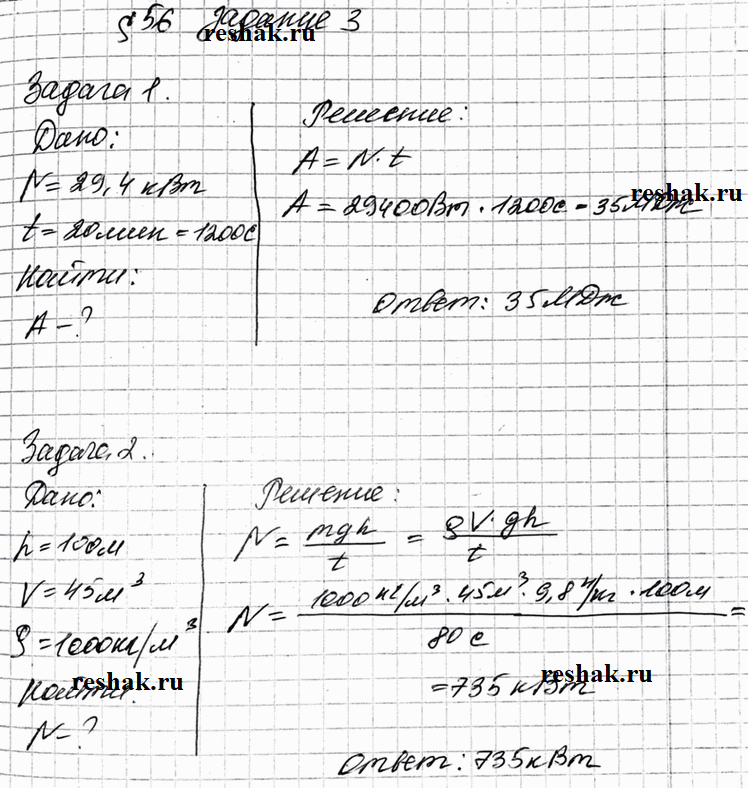 § 56 Задание 3
reshak.ru
Задача 1.
Дано:
N = 29,4 кВт
t = 20 мин = 1200с
Найти:
A - ?
Решение:
A = N · t
A = 29400Вт · 1200с = 35МДж
reshak.ru
Ответ: 35 МДж
Задача 2.
Дано:
h = 100м
V = 45м³
ρ = 1000кг/м³
Найти:
reshak.ru
N - ?
Решение:
N = mgh/t = ρV·gh/t
N = 1000кг/м³ · 45м³ · 9,8 Н/кг · 100м / 80 с =
= 735 кВт
reshak.ru
Ответ: 735 кВт